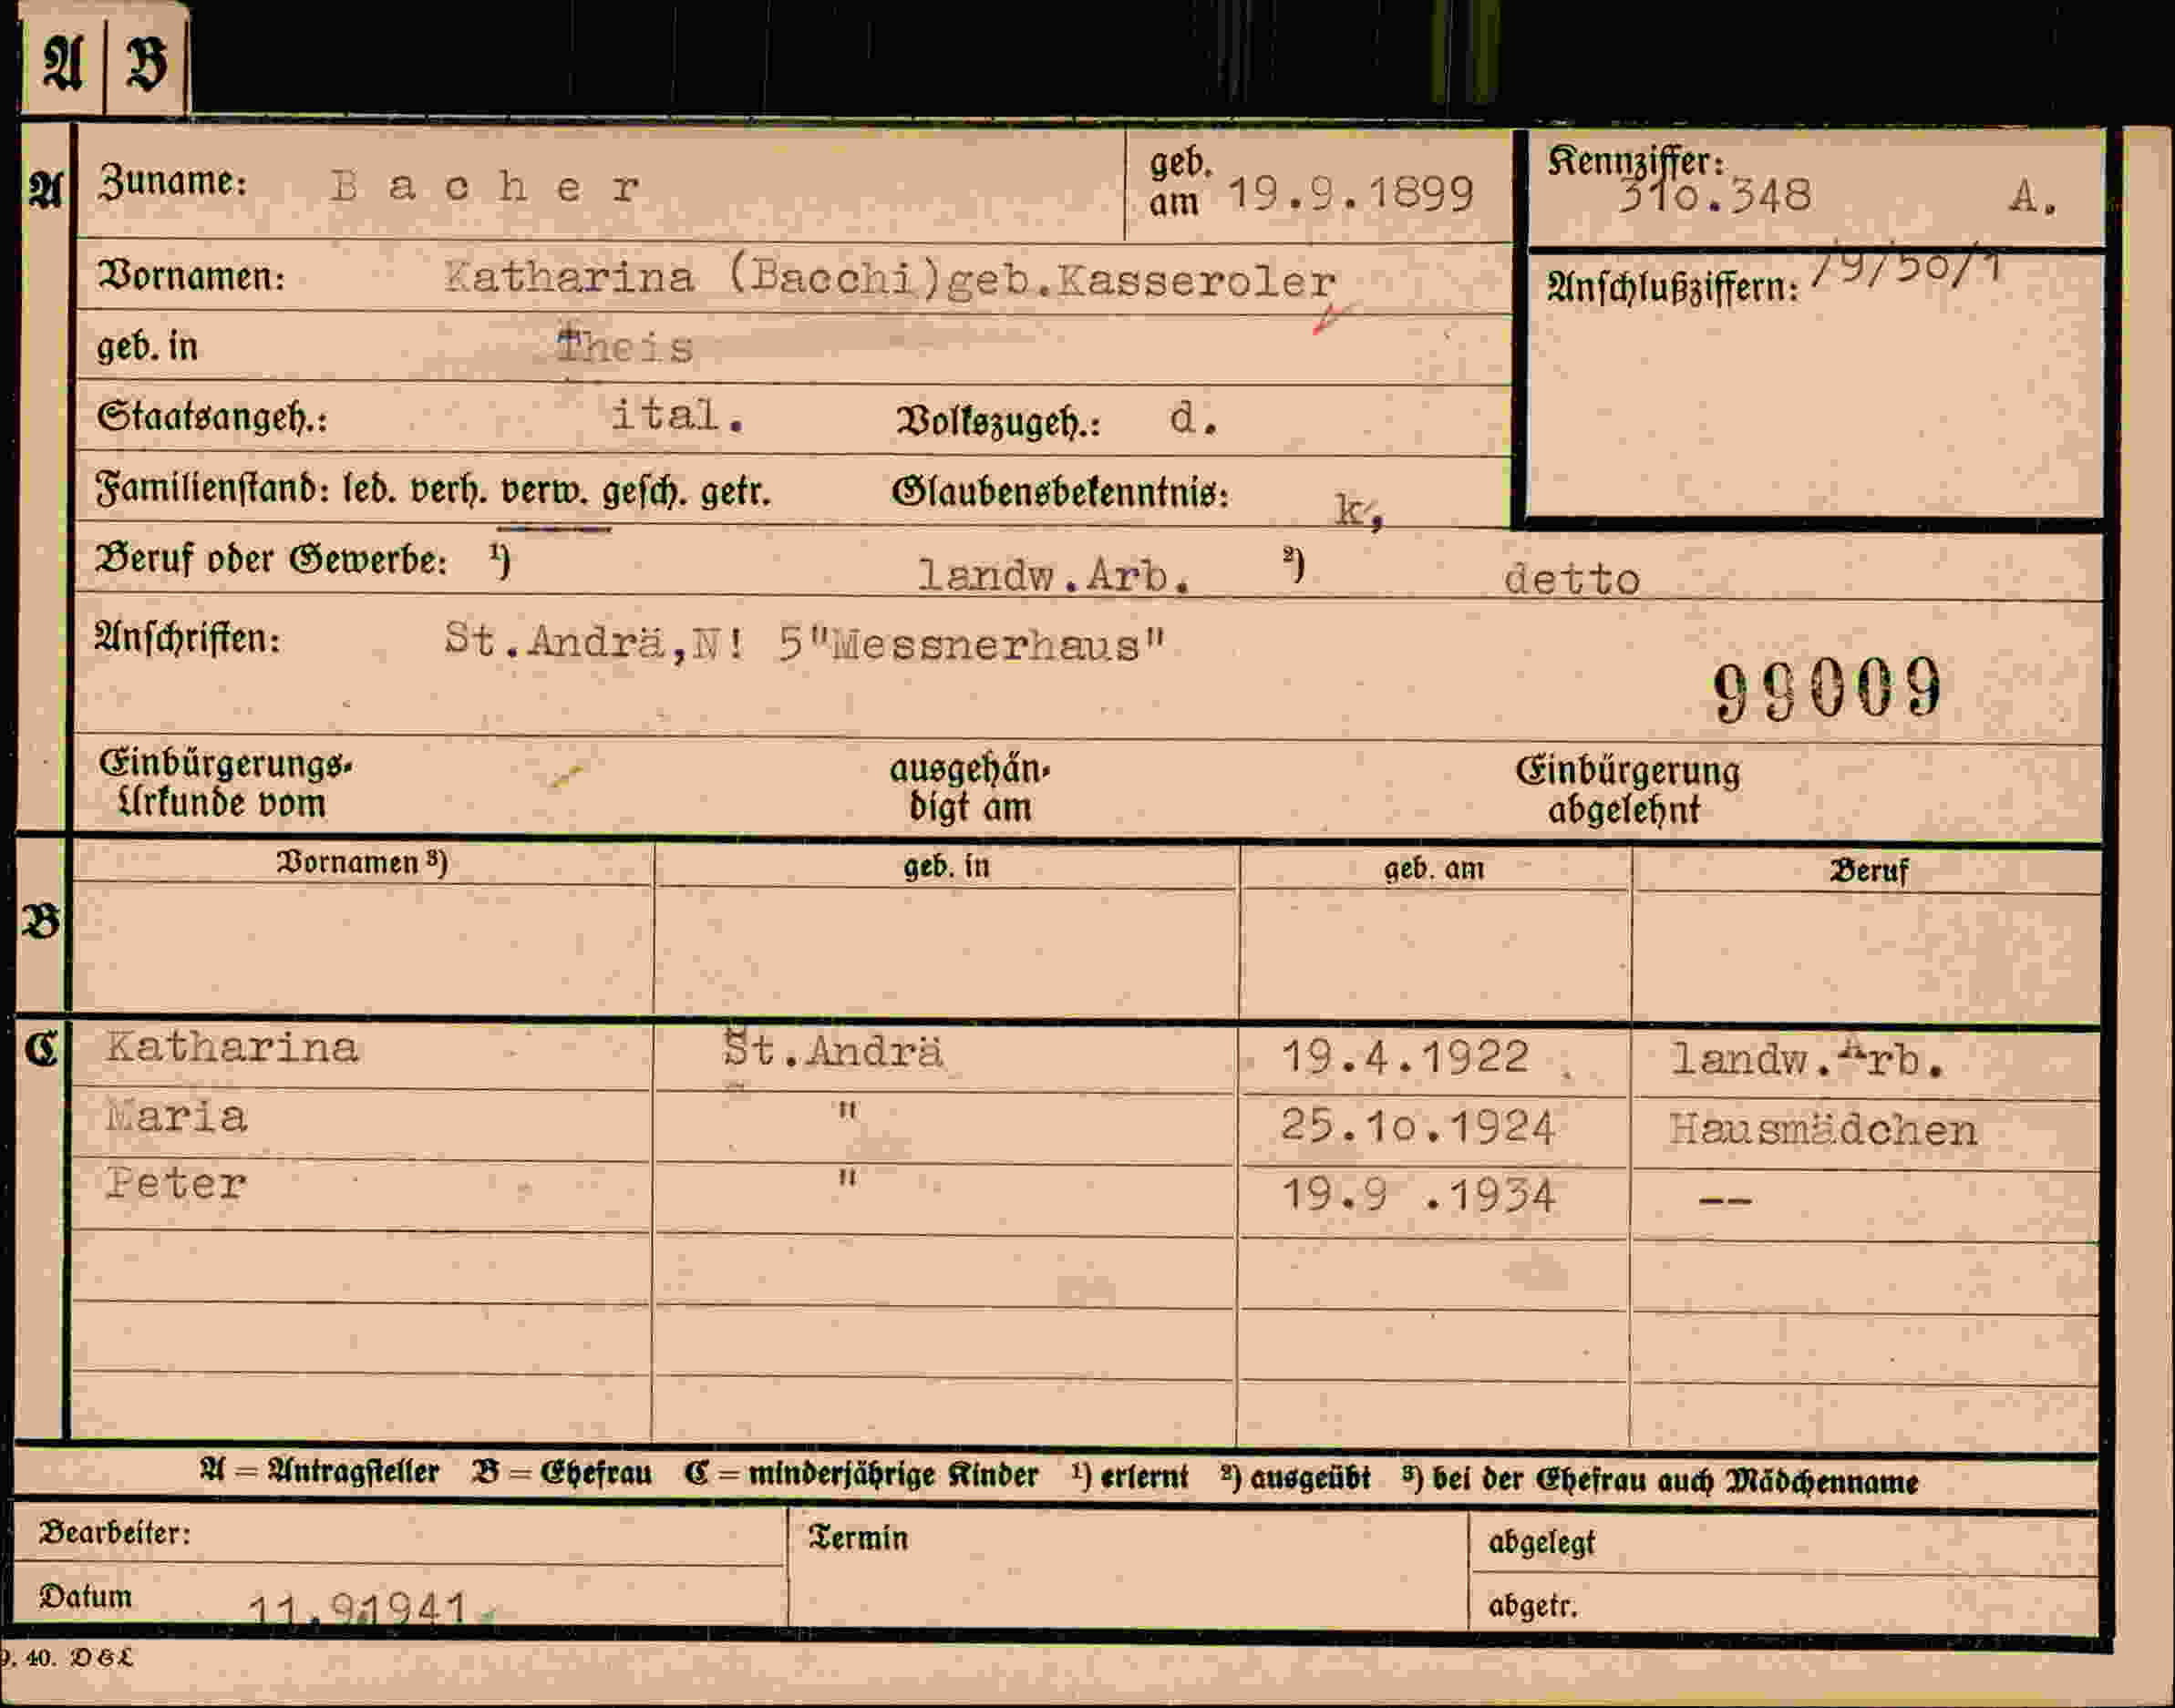 A B
A Zuname: Bacher geb. am 19.9.1899 Kennziffer: 310.348 A.
Vornamen: Katharina (Bacchi)geb.Kasseroler Anschlußziffern: 79/50/1
geb. in Theis
Staatsangeh.: ital. Volkszugeh.: d.
Familienstand: led. verh. verw. gesch. getr. Glaubensbekenntnis: k,
Beruf oder Gewerbe: ¹) landw.Arb. ²) detto
Anschriften: St.Andrä,N! 5"Messnerhaus"
99009
Einbürgerungs- ausgehän- Einbürgerung
Urkunde vom digt am abgelehnt
Vornamen ³) geb. in geb. am Beruf
B
C Katharina St.Andrä 19.4.1922 landw.Arb.
Maria " 25.10.1924 Hausmädchen
Peter " 19.9 .1934 --
A = Antragsteller B = Ehefrau C = minderjährige Kinder ¹) erlernt ²) ausgeübt ³) bei der Ehefrau auch Mädchenname
Bearbeiter: Termin abgelegt
Datum 11.9.1941 abgetr.
9. 40. DGL